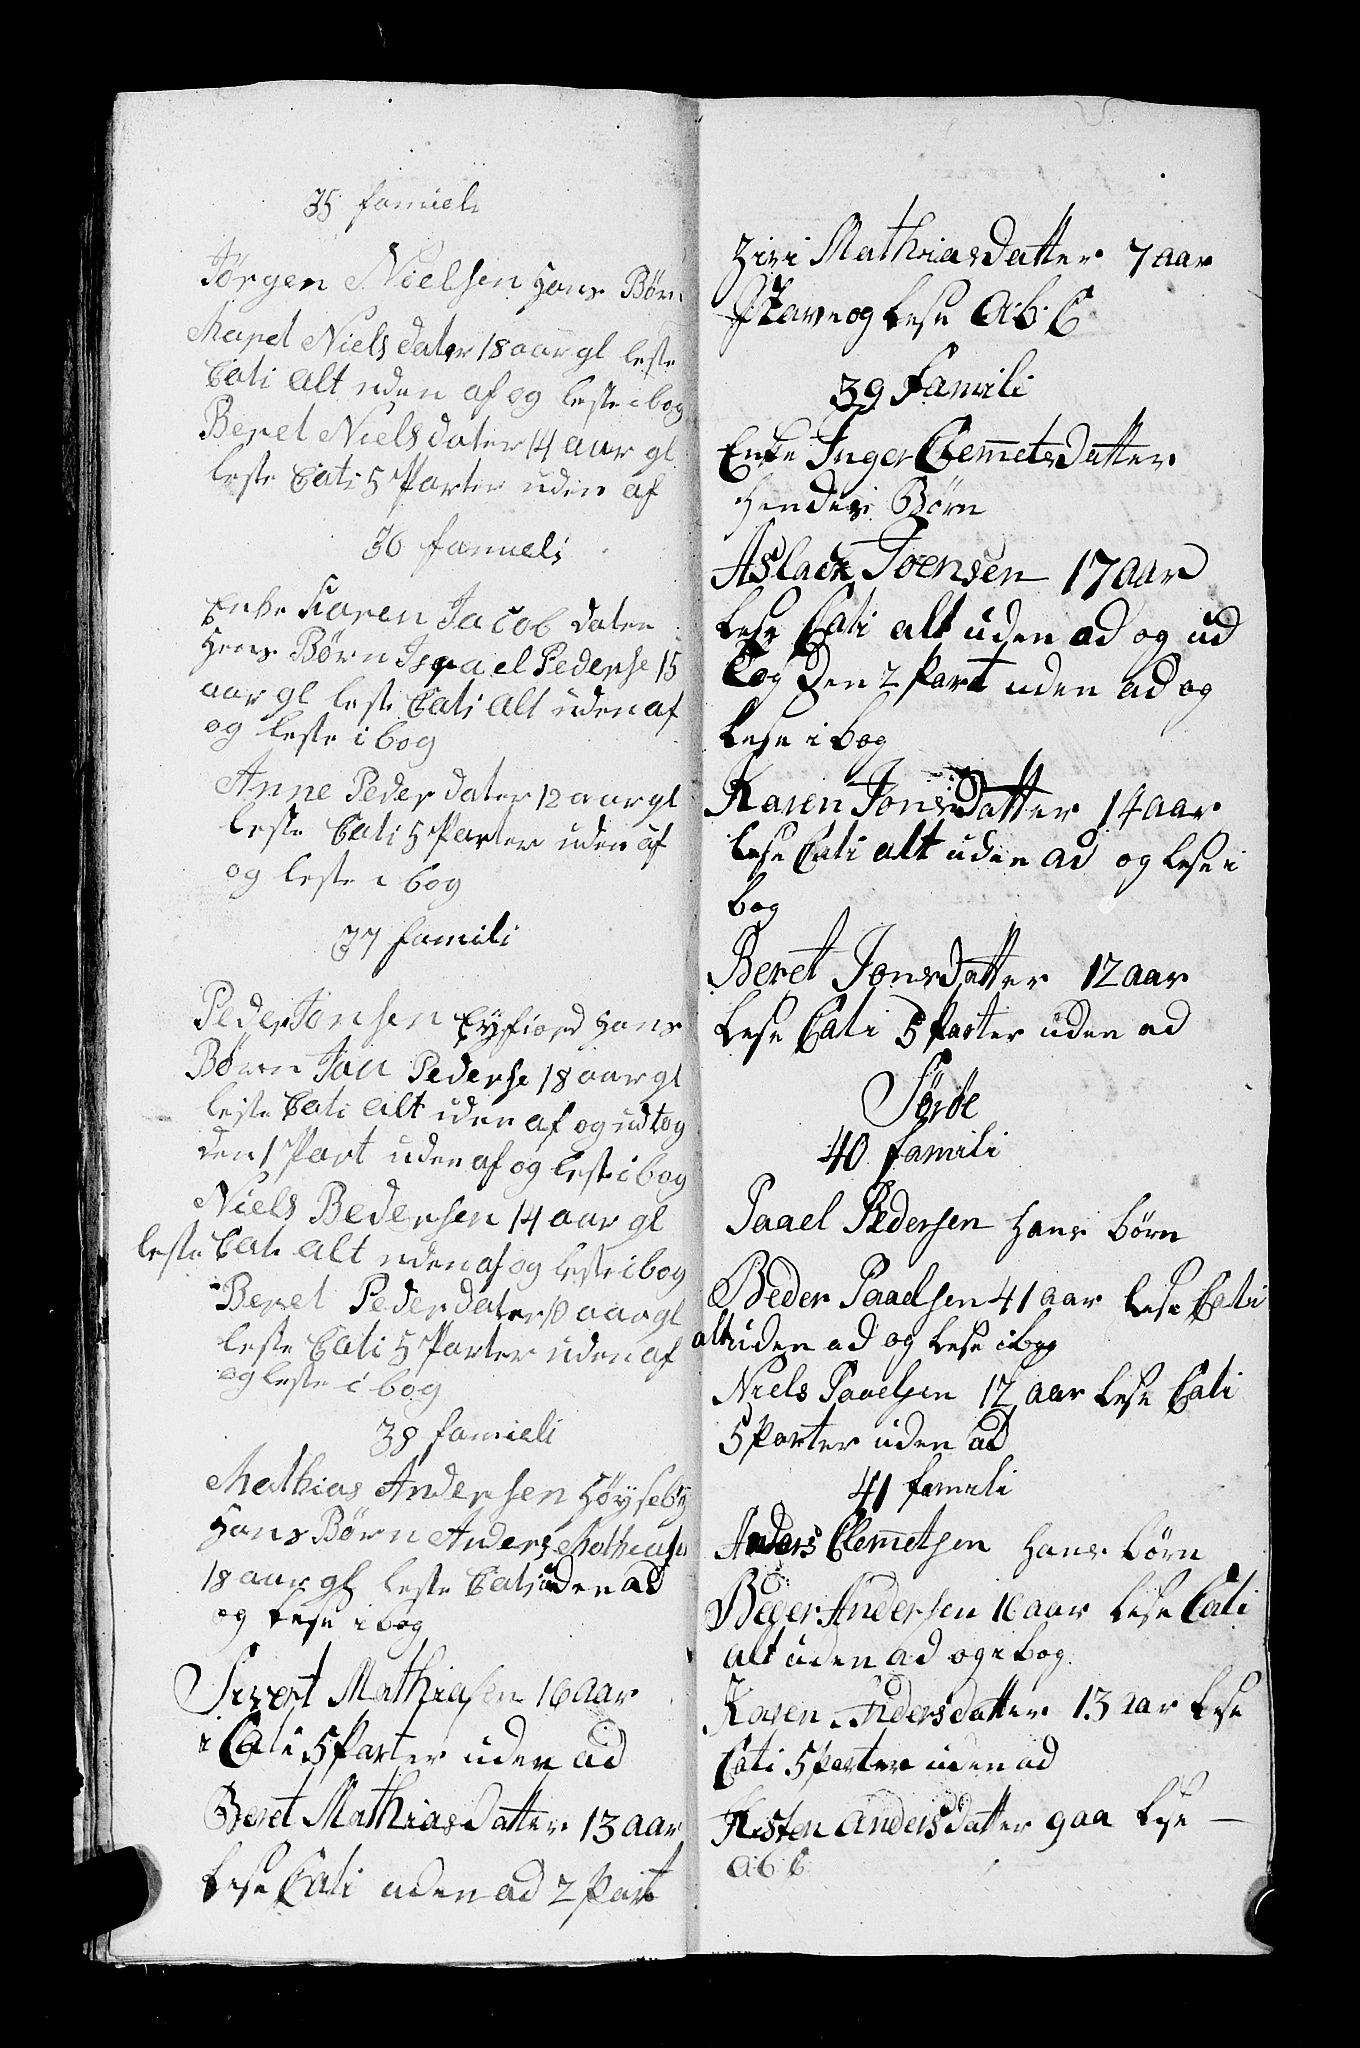 35 famieli
Jørgen Nielsen Hans Børn
Maret Niels dater 18 aar gl leste
Cati alt uden af og leste i bog
Beret Niels dater 14 aar gl
leste Cati 5 Parter uden af
36 famieli
Enke Karen Jacob daten
Hens Børn Israel Pederse 15
aar gl leste Cati alt uden af
og leste i bog
Anne Peder dater 12 aar gl
leste Cati 5 Parter uden af
og leste i bog
37 famili
Peder Jonsen Eyfiord Hans
Børn Jon Pederse 18 aar gl
leste Cati alt uden af og udtog
den 1 Part uden af og leste i bog
Niels Bedersen 14 aar gl
leste Cati alt uden af og leste i bog
Beret Peder dater 10 aar gl
leste Cati 5 Parter uden af
og leste i bog
38 famieli
Mathias Andersen Høyseby
Hans Børn Anders Mathiasn
18 aar gl leste Cati uden ad
og lese i bog
Sivert Mathiasen 16 aar
Cati 5 Parter uden ad
Beret Mathiasdatter 13 aar
lese Cati uden ad 2 Part
Ziri Mathiasdatter 7 aar
Stave og lese A.b.C
39 famili
Enke Inger Clemetsdatter
Hendes Børn
Aslack Joensen 17 aar
lese Cati alt uden ad og ud
tog den 2 Part uden ad og
lese i bog
Karen Jonsdatter 14 aar
lese Cati alt uden ad og lese i
bog
Beret Jonsdatter 12 aar
Lese Cati 5 Parter uden ad
Sørøe
40 famili
Paael Pedersen Hans børn
Beder Paaelsen 41 aar lese Cati
alt uden ad og lese i bog
Niels Paaelsen 12 aar lese Cati
5 Parter uden ad
41 famili
Anders Clemetsen Hans børn
Beger Andersen 16 aar lese Cati
alt uden ad og i bog
Karen Andersdatter 13 aar lese
Cati 5 parter uden ad
Kisten andersdatter 9 aa lese —
a b c